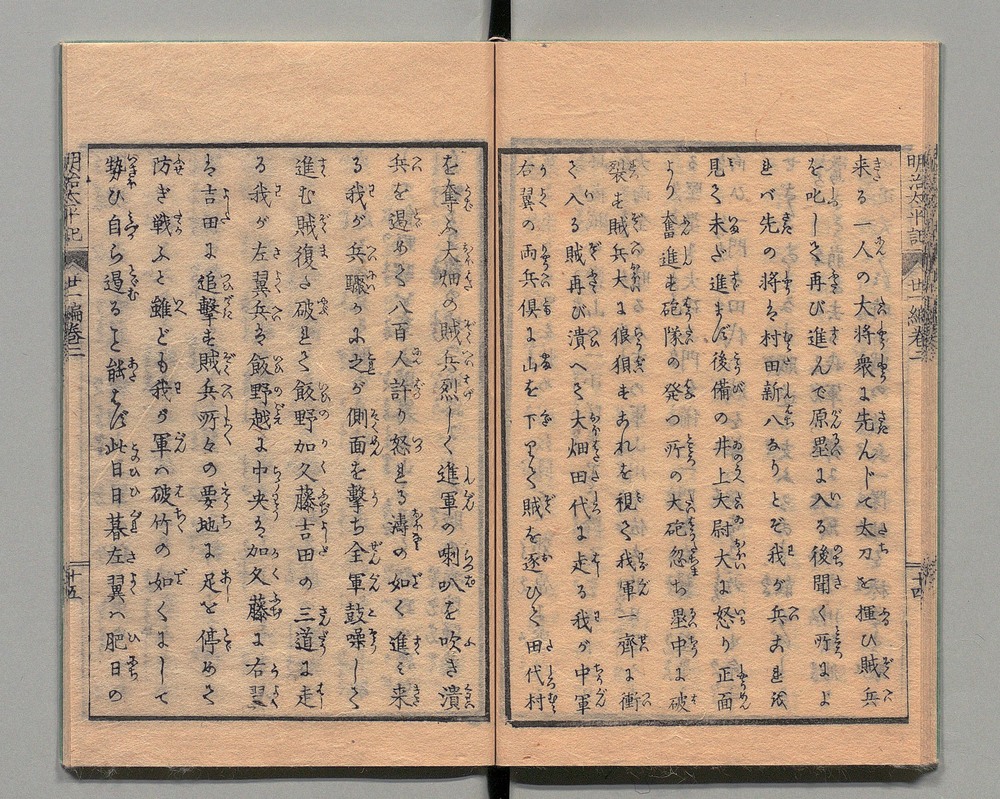 来る一人の大将衆に先んじて太刀を揮ひ賊兵
を叱して再び進んで原塁に入る後聞く所によ
れバ先の将ハ村田新八なりとぞ我が兵これを
見て未だ進まず後備の井上大尉大に怒り正面
より奮進す砲隊の発つ所の大砲忽ち塁中に破
裂す賊兵大に狼狽すあれを視て我軍一齊に衝
て入る賊再び潰へて大畑田代に走る我が中軍
右翼の両兵倶に山を下りて賊を逐ひて田代村
明治太平記
廿一編巻二
十四
を奪ふ大畑の賊兵烈しく進軍の喇叭を吹き潰
兵を遏めて八百人許り怒れる濤の如く進ミ来
る我が兵驟かに之が側面を撃ち全軍鼓噪して
進む賊復た破れて飯野加久藤吉田の三道に走
る我が左翼兵ハ飯野越に中央ハ加久藤に右翼
ハ吉田に追撃す賊兵所々の要地に足を停めて
防ぎ戦ふと雖ども我が軍ハ破竹の如くにして
勢ひ自ら遏ること能はず此日日暮左翼ハ肥日の
明治太平記
廿一編巻二
十五